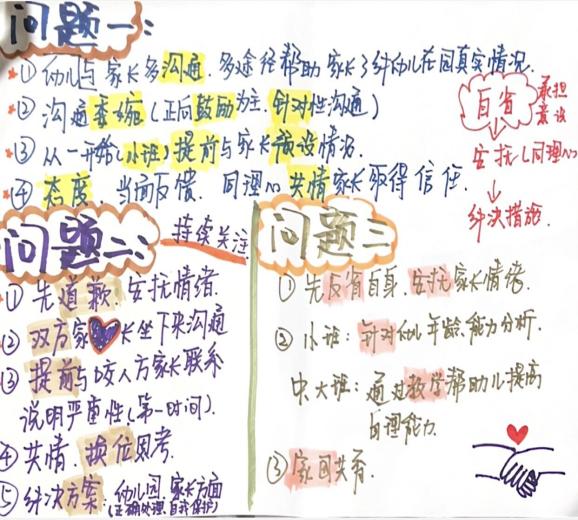 问题一:
①幼儿与家长多沟通.多途径帮助家长了解幼儿在园真实情况.
②沟通委婉(正向鼓励为主.针对性沟通)
③从一开始(小班)提前与家长预设情况.
④态度.当面反馈.同理心共情家长取得信任.
自省
承担
意识
安抚(同理心)
解决措施.
问题二:
持续关注
①先道歉.安抚情绪.
②双方家长坐下来沟通
③提前与咬人方家长联系
说明严重性(第一时间).
④共情.换位思考.
⑤解决方案:幼儿园.家长方面
(正确处理.自我保护)
问题三
①先反省自身.安抚家长情绪.
②小班:针对幼儿年龄.能力分析.
中大班:通过教学帮助儿提高
自理能力.
③家园共育.